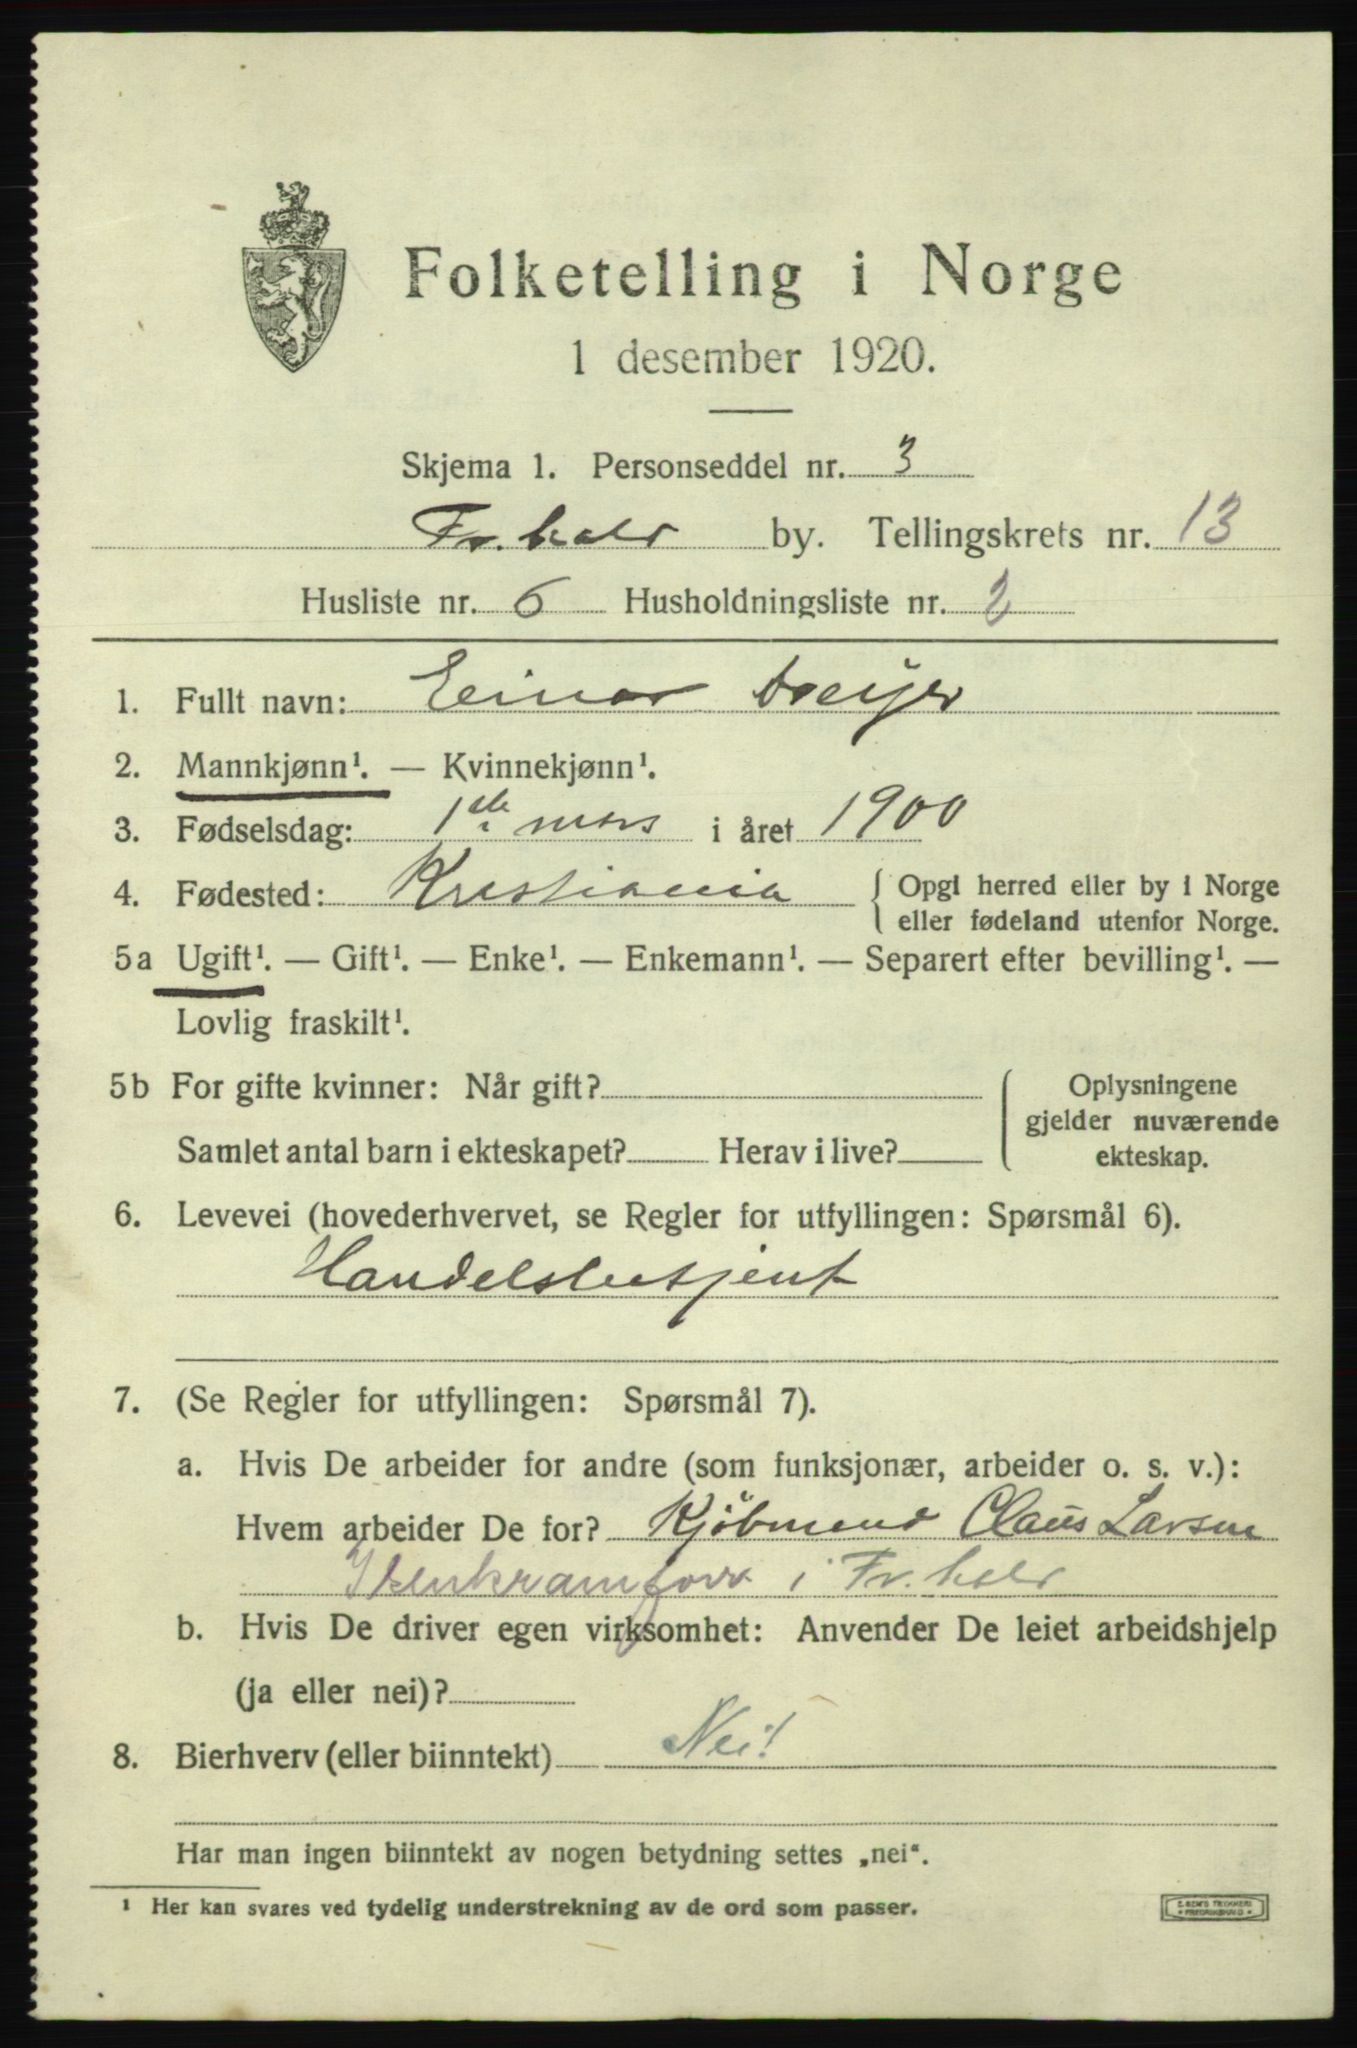 Folketelling i Norge
1 desember 1920.
Skjema 1. Personseddel nr. 3
Fr.hald by. Tellingskrets nr. 13
Husliste nr. 6 Husholdningsliste nr. 2
1. Fullt navn: Einar
2. Mannkjønn¹. — Kvinnekjønn¹.
3. Fødselsdag: 1ste mars i året 1900
4. Fødested: Kristiania { Opgi herred eller by i Norge
eller fødeland utenfor Norge.
5a Ugift¹. — Gift¹. — Enke¹. — Enkemann¹. — Separert efter bevilling¹. —
Lovlig fraskilt¹.
5b For gifte kvinner: Når gift? { Oplysningene
gjelder nuværende
Samlet antal barn i ekteskapet? Herav i live? ekteskap.
6. Levevei (hovederhvervet, se Regler for utfyllingen: Spørsmål 6).
Handelsbetjent
7. (Se Regler for utfyllingen: Spørsmål 7).
a. Hvis De arbeider for andre (som funksjonær, arbeider o. s. v.):
Hvem arbeider De for? Kjöbmend Claus Larsen
Isenkramforr i Fr.hald
b. Hvis De driver egen virksomhet: Anvender De leiet arbeidshjelp
(ja eller nei)?
8. Bierhverv (eller biinntekt) Nei!
Har man ingen biinntekt av nogen betydning settes „nei“.
¹ Her kan svares ved tydelig understrekning av de ord som passer.